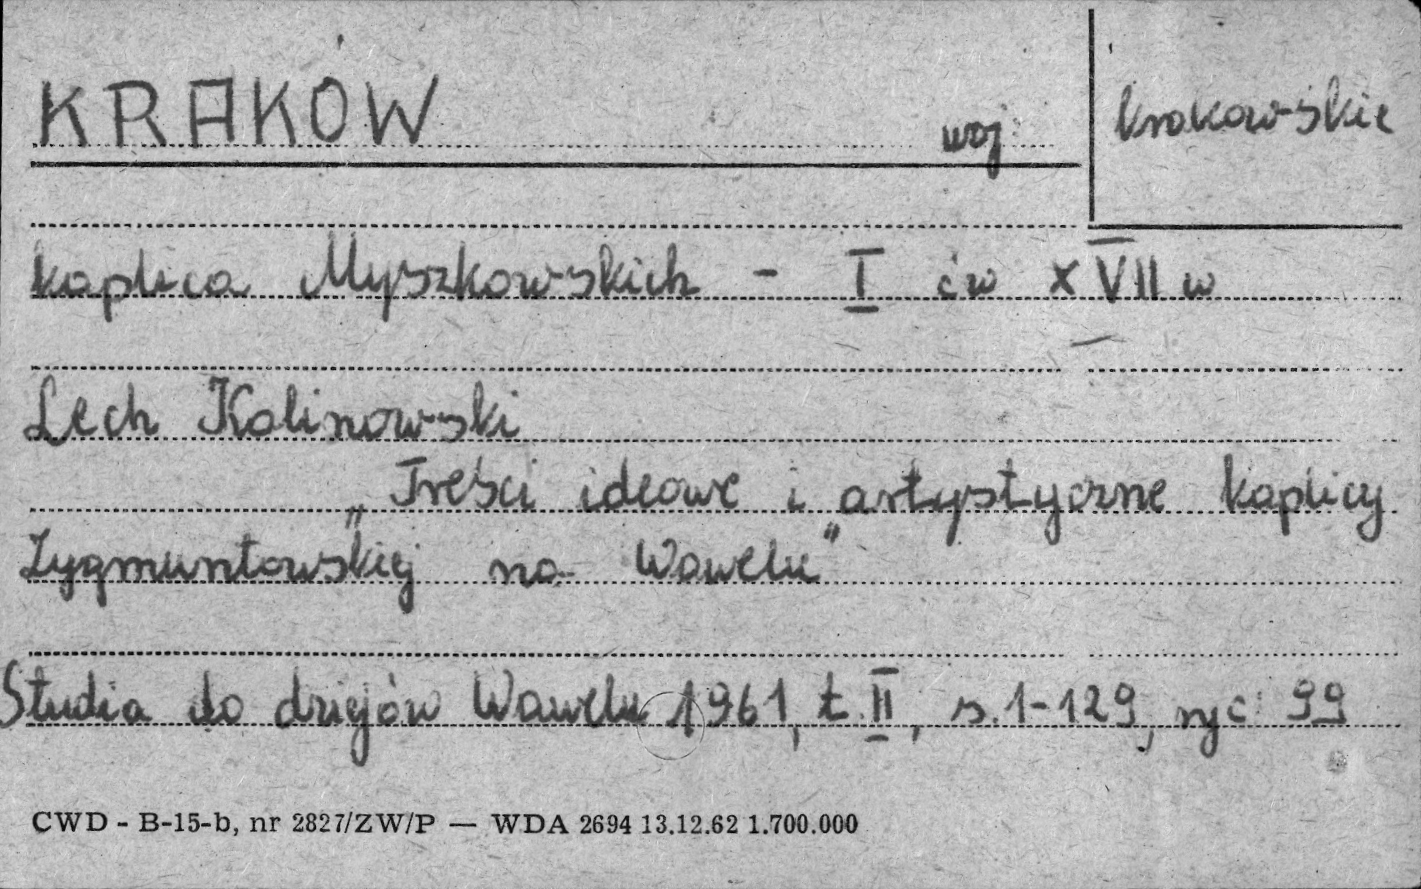 KRAKÓW woj. krakowskie
kaplica Myszkowskich - I ćw XVII w
Lech Kalinowski
„Treści ideowe i artystyczne kaplicy
Zygmuntowskiej na Wawelu"
Studia do dziejów Wawelu 1961, t. II, s. 1-129, ryc 99
CWD - B-15-b, nr 2827/ZW/P — WDA 2694 13.12.62 1.700.000